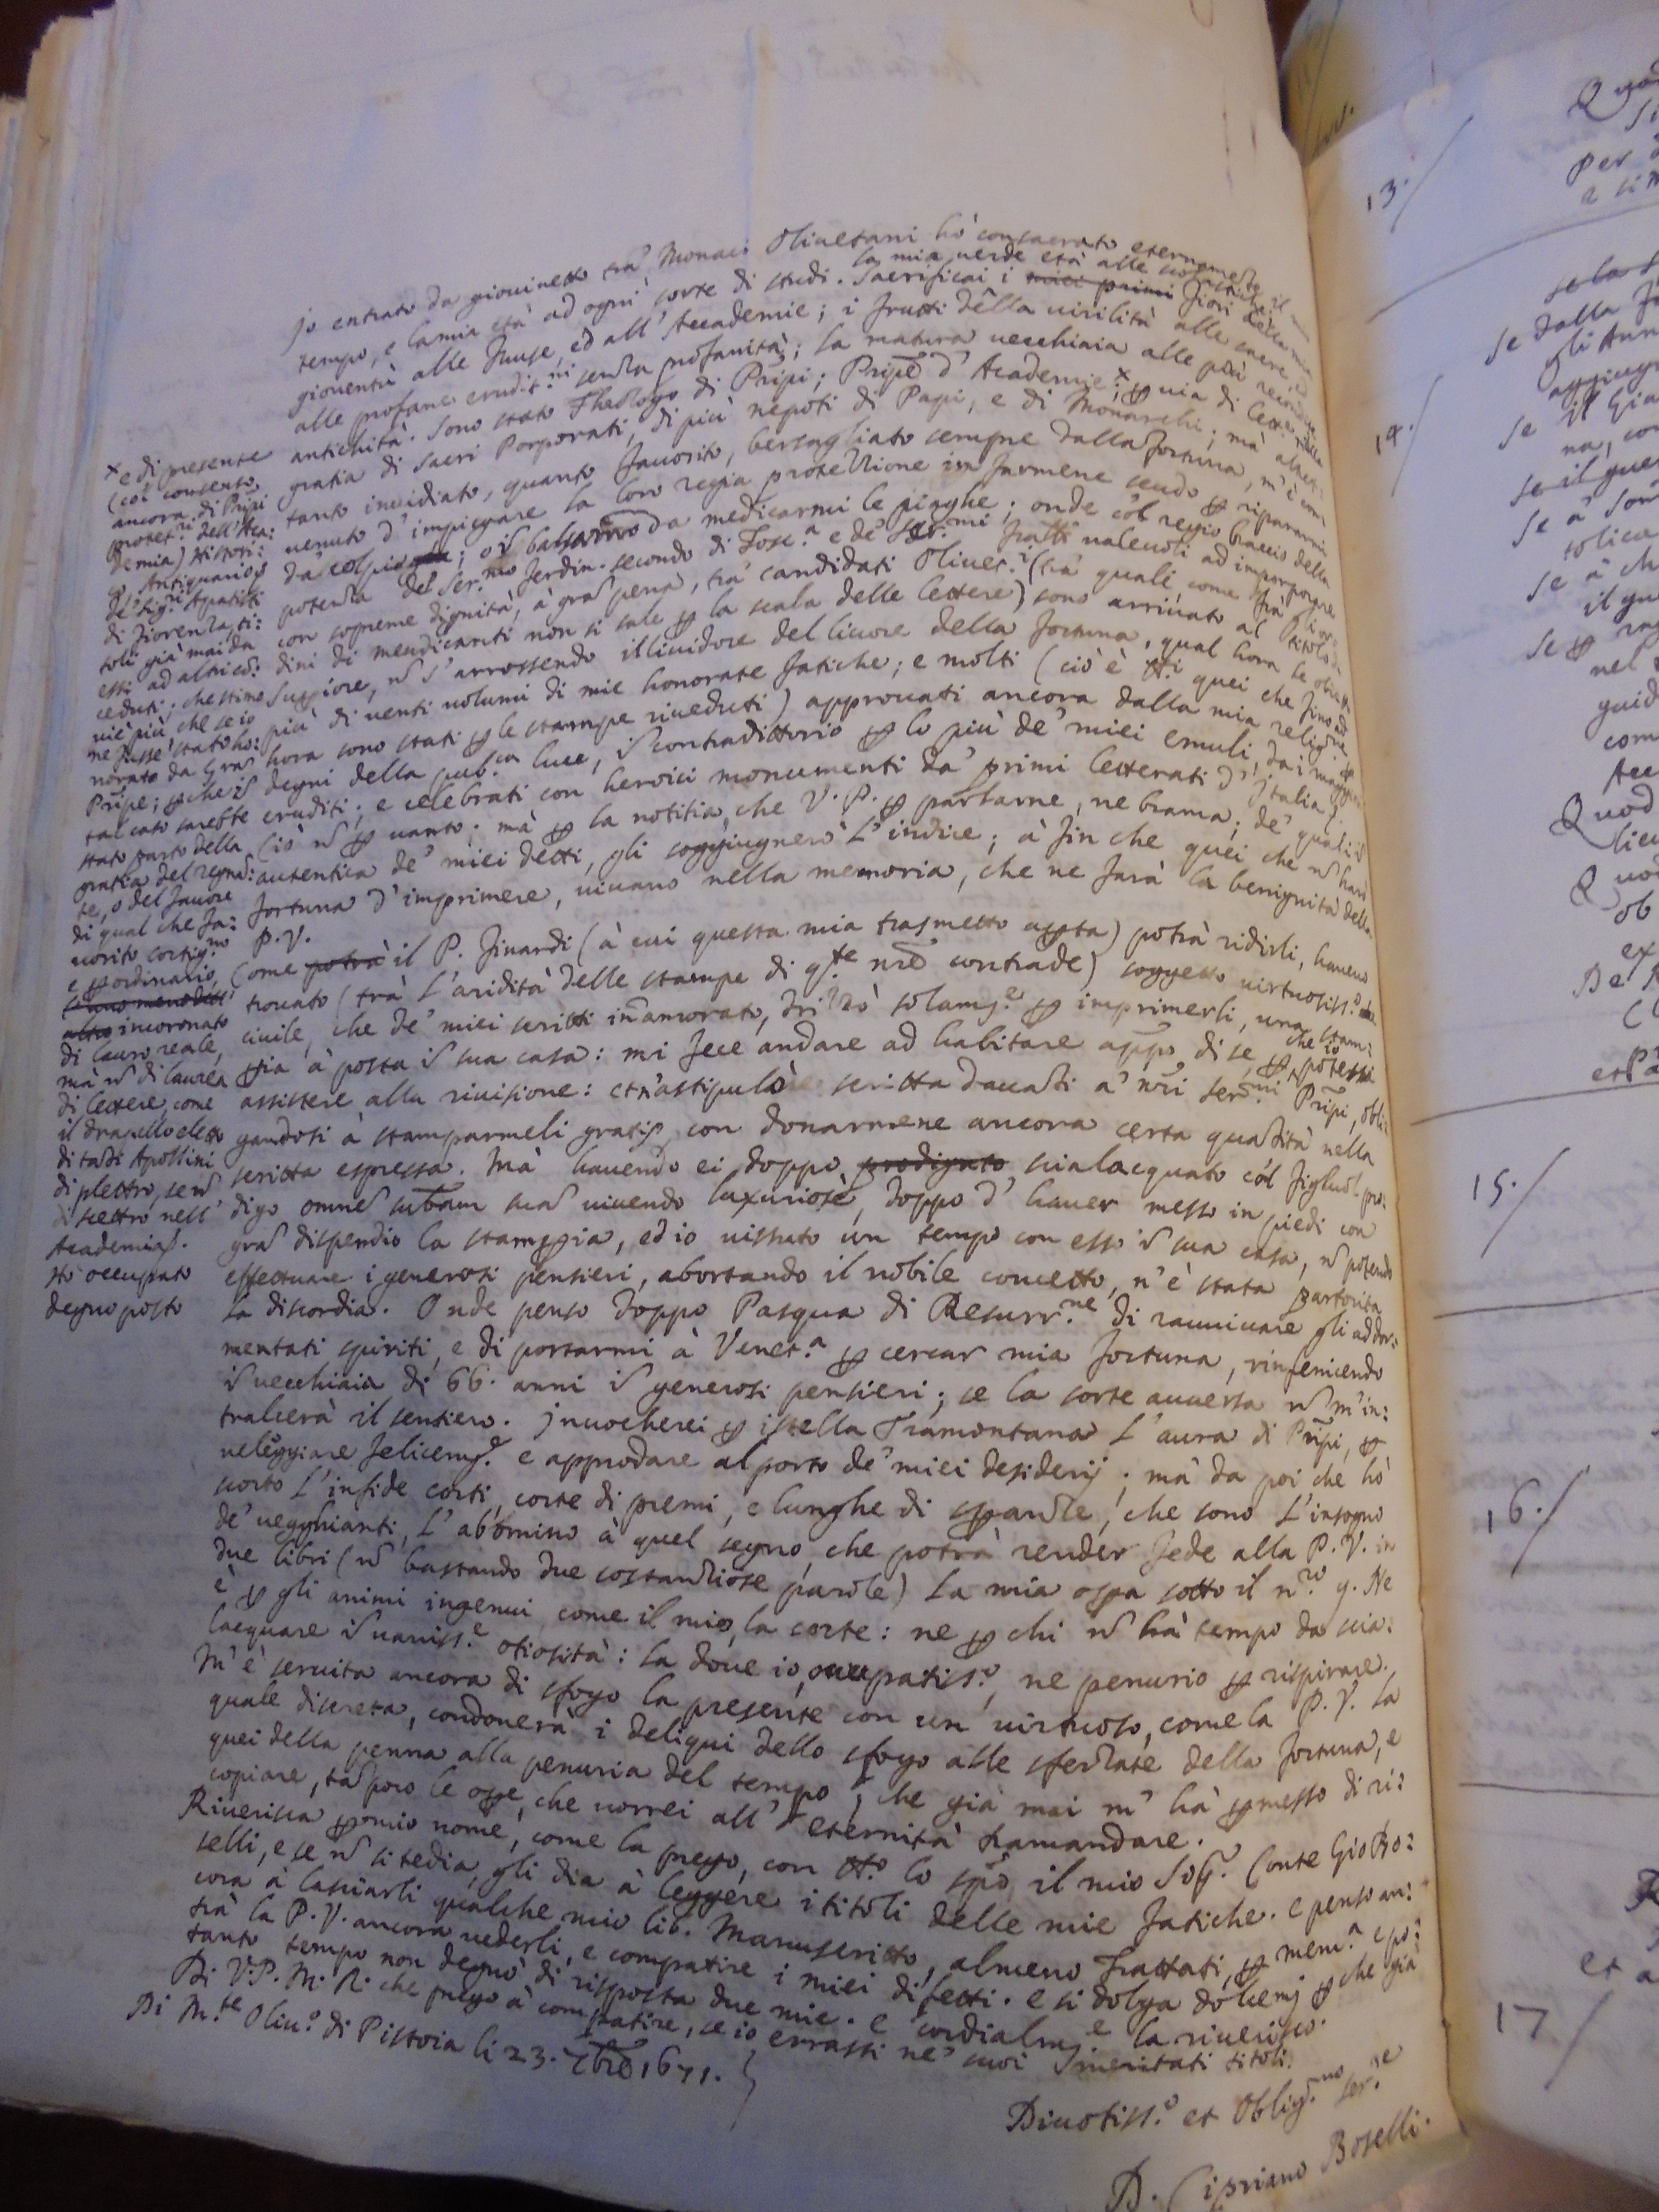 Jo entrato da giouinetto trà Monaci Oliuetani hò consacrato eternamente il mio
tempo, e la mia età ad ogni sorte di studi. Sacrificai i miei primi fiori della mia
la mia uerde età alle scolastiche
giouentù alle Muse, ed all' Accademie; i frutti della uirilità alle sacre, ed
alle profane erudit.ni senza profanità; la matura uecchiaia alle più recondite
antichità. Sono stato Theologo di Pñpi; Pñpe d' Academie; x ꝑ uia di lettere nella
gratia di sacri Porporati, di più nepoti di Papi, e di Monarchi; mà altret:
tanto inuidiato, quanto fauorito, bersagliato sempre dalla fortuna, m'è con:
uenuto d' impiegare la loro regia protezzione in farmene scudo ꝑ ripararmi
da colpi; ò il balsamo da medicarmi le piaghe; onde cól regio braccio della
potenza del Ser.mo Ferdin. secondo di Tosc.a e de' Ser.mi fratelli ualeuoli ad imporporare
con sopreme dignità, à gran pena, trà candidati Oliuet.i (trà quali come frà l'or:
dini di mendicanti non si sale ꝑ la scala delle lettere) sono arriuato al titolo di
Suppiore, nõ s' arrossendo il liuidore del liuore della fortuna, qual hora le oblatꝭ
più di uenti uolumi di mie honorate fatiche; e molti (ciò è tt.i quei che fino ad
hora sono stati ꝑ le stampe riueduti) approuati ancora dalla mia relig.ne ꝑ
degni della pub.ca luce, ĩ contradittorio ꝑ lo più de' miei emuli, da i maggiori
eruditi; e celebrati con heroici monumenti da' primi letterati d' Italia;
Ciò nõ ꝑ uanto: mà ꝑ la notitia, che V. P. ꝑ parlarne, ne brama; de' quali ĩ
autentica de' miei detti, gli soggiugnerò l' indice; à fin che quei che nõ hanno
fortuna d' imprimere, uiuano nella memoria, che ne farà la benignità della
P. V.
Come potrà il P. Finardi (à cui questa mia trasmetto apꝑta) potrà ridirli, haueuo
trouato (trà l' aridità delle stampe di q.te nře contrade) soggetto uirtuosiss.o
ciuile, che de' miei scritti innamorato, drizzò solam.e ꝑ imprimerli, una stam:
ꝑia à posta ĩ sua casa: mi fece andare ad habitare appo di se, ꝑ che io potessi
assistere alla riuisione: et n' astipulò scritta dauanti a' nři ser.mi Pñpi, obli:
gandosi à stamparmeli gratis, con donarmene ancora certa quantità nella
scritta espressa. Mà hauendo ei doppo prodigato scialacquato cól figliuol pro:
digo omnẽ subãm suã uiuendo luxuriosè, doppo d' hauer messo in piedi con
gran dispendio la stamꝑia, ed io uissuto un tempo con esso ĩ sua casa, nõ potendo
effettuare i generosi pensieri, abortando il nobile concetto, n' è stata partorita
la discordia. Onde penso doppo Pasqua di Resurr.ne di rauuiuare gli addor:
mentati spiriti, e di portarmi à Venet.a ꝑ cercar mia fortuna, rinfenicendo
ĩ uecchiaia di 66. anni ĩ generosi pensieri; se la sorte auuersa nõ m' in:
tralcerà il sentiero. Jnuocherei ꝑ istella Tramontana l' aura di Pñpi, ꝑ
ueleggiare felicem.e e approdare al porto de' miei desiderij; mà da poi che hò
scorto l' infide corti, corte di premi, e lunghe di ꝑarole, che sono l' insogno
de' uegghianti, l' abomino à quel segno, che potrà render fede alla P. V. in
due libri (nõ bastando due sostanziose parole) la mia oꝑa sotto il n.ro 9. Ne
è ꝑ gli animi ingenui, come il mio, la corte: ne ꝑ chi nõ hà tempo da scia:
lacquare ĩ uaniss.e otiosità: la doue io, occupatiss.o, ne penurio ꝑ rispirare.
M' è seruita ancora di sfogo la presente con un uirtuoso, come la P. V. la
quale discreta, condonerà i deliqui dello sfogo alle sferzate della fortuna, e
quei della penna alla penuria del tempo, che già mai m' hà ꝑmesso di ri:
copiare, tãpoco le oꝑe, che uorrei all' eternità tramandare.
Riuerisca ꝑ mio nome, come la prego, con tt.o lo spõ, il mio Sig.r Conte Gio Bo:
selli, e se nõ si tedia, gli dia à leggere i titoli delle mie fatiche. e penso an:
cora à lasciarli qualche mio lib. Manuscritto, almeno Trattati, ꝑ mem.a e po:
trà la P. V. ancora uederli, e compatire i miei difetti. e si dolga dolcem.e ꝑ che già
tanto tempo non degnò di risposta due mie. e cordialm.e la riuerisco.
Di V. P. M. R. che prego à compatire, se io errassi ne' suoi meritati titoli.
Di M.te Oliu.o di Pistoia li 23. 7bre 1671.
Diuotiss.o et Oblig.mo ser.e
D. Cipriano Boselli.
x e di presente
(col consenso
ancora di Pñpi
protet.ri dell' Aca:
demia) Histori:
co, Antiquario
de' Sig.ri Apatisti
di Fiorenza ti:
toli già mai da
essi ad altri cõ:
ceduti; che stimo
uie più che se io
ne fusse stato ho:
norato da Gran
Pñpe; ꝑ che ĩ
tal caso sarebbe
stato parto della
gratia del regnã:
te, o del fauore
di qual che fa:
uorito cortig.no
e ꝑ ordinario
incoronato
di lauro reale,
mà nõ di laurea
di lettere, come
il drapello eletto
di tãti Apollini
di plettro, se nõ
di scettro nell'
Academia.
hò occupato
degno posto
13.
14.
Se dalla
gli Ann
aggiung
se il Gia
na, con
se il
se a' Som
tolica
se à ch
il qu
nel
guid
com
Acc
Quod
lic
Quod
ob
ex
15.
16.
17
et a